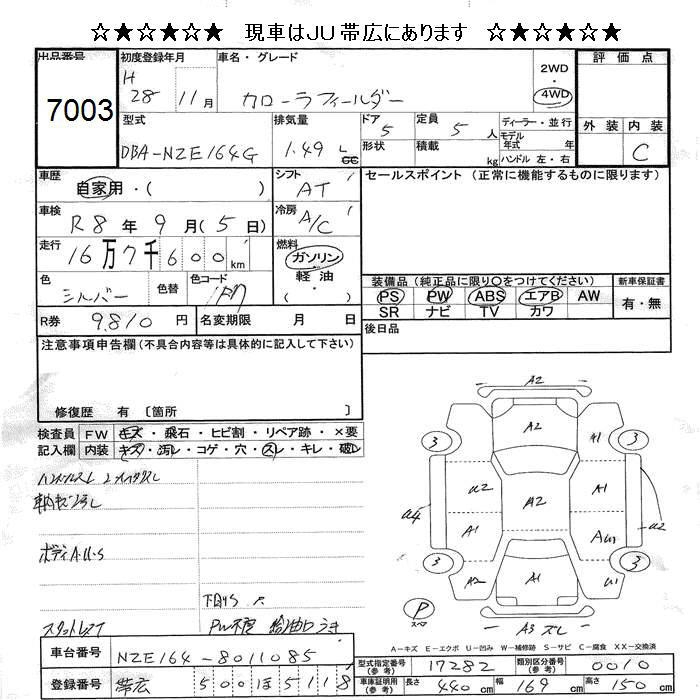 ☆★☆★☆★ 現車はJU帯広にあります ☆★☆★☆★
出品番号 7003
初度登録年月 H 28 11月
車名・グレード カローラフィールダー
2WD・4WD
評価点
外装 内装 C
型式 DBA-NZE164G
排気量 1.49 L cc
ドア 5 定員 5 人
形状 積載 kg
ディーラー・並行
モデル年式 年
ハンドル 左・右
車歴 自家用・( )
シフト AT
車検 R8年 9月(5日)
冷房 A/C
走行 16万7千600km
燃料 ガソリン 軽油 ( )
色 シルバー 色替 色コード
R券 9,810円 名変期限 月 日
セールスポイント (正常に機能するものに限ります)
装備品 (純正品に限り○をつけてください) 新車保証書
PS PW ABS エアB AW 有・無
SR ナビ TV カワ
後日品
注意事項申告欄 (不具合内容等は具体的に記入して下さい)
修復歴 有 〔箇所 〕
検査員 FW キズ・飛石・ヒビ割・リペア跡・×要
記入欄 内装 キズ・汚レ・コゲ・穴・スレ・キレ・破レ
ボディA.U.S
下回りS
スタットレス
PW不良 給油口うき
A2
A2
A1
3 3
U2 A2 A1
U4 U2
A1
3 3
A2 A1 U1
P
A3 ズレ
A-キズ E-エクボ U-凹み W-補修跡 S-サビ C-腐食 XX-交換済
車台番号 NZE164-8011085
登録番号 帯広 500 ほ 5118
型式指定番号 (参考) 17282 類別区分番号 (参考) 0010
車庫証明用 (参考) 長さ 440cm 幅 169cm 高さ 150cm